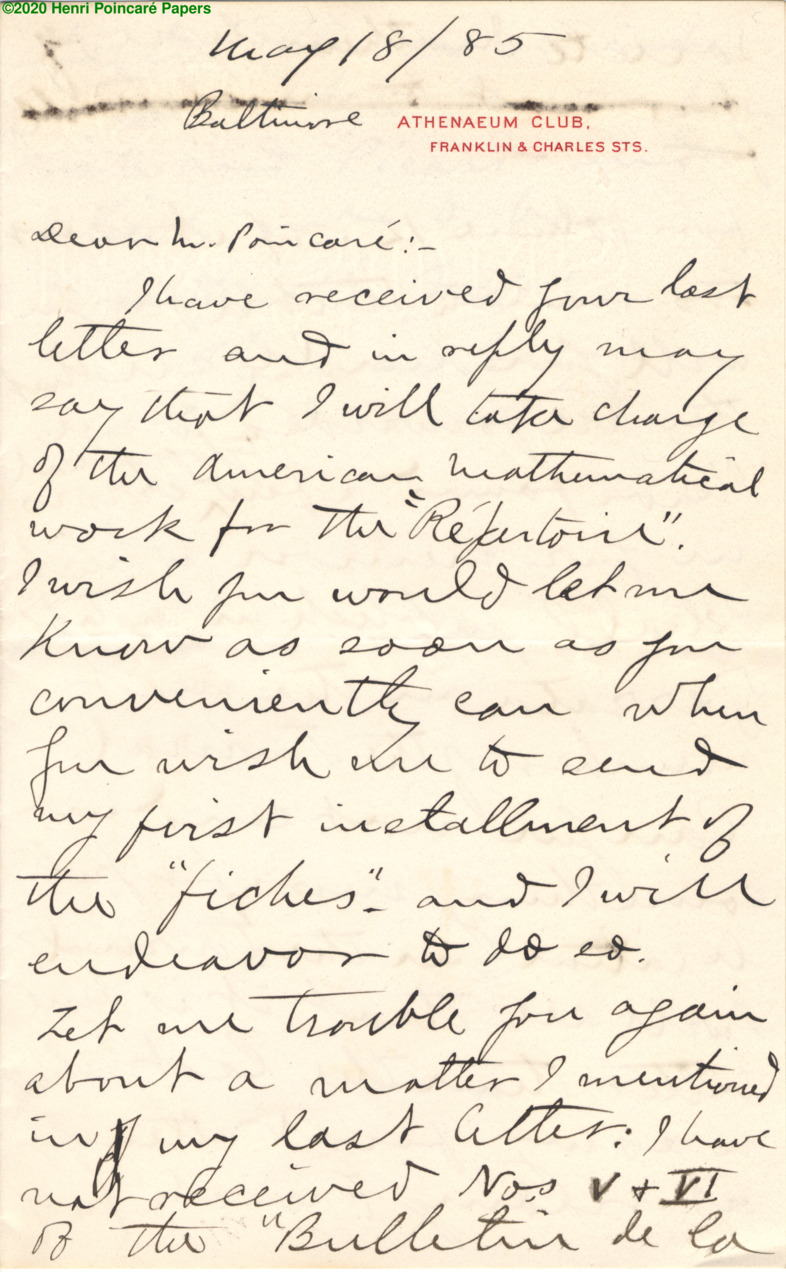 ©2020 Henri Poincaré Papers
May 18/85
Baltimore ATHENAEUM CLUB,
FRANKLIN & CHARLES STS.
Dear M. Poincaré:–
I have received your last
letter and in reply may
say that I will take charge
of the American mathematical
work for the "Répertoire".
I wish you would let me
know as soon as you
conveniently can when
you wish me to send
my first installment of
the "fiches" – and I will
endeavor to do so.
Let me trouble you again
about a matter I mentioned
in my last letter: I have
not received Nos V + VI
of the "Bulletin de la